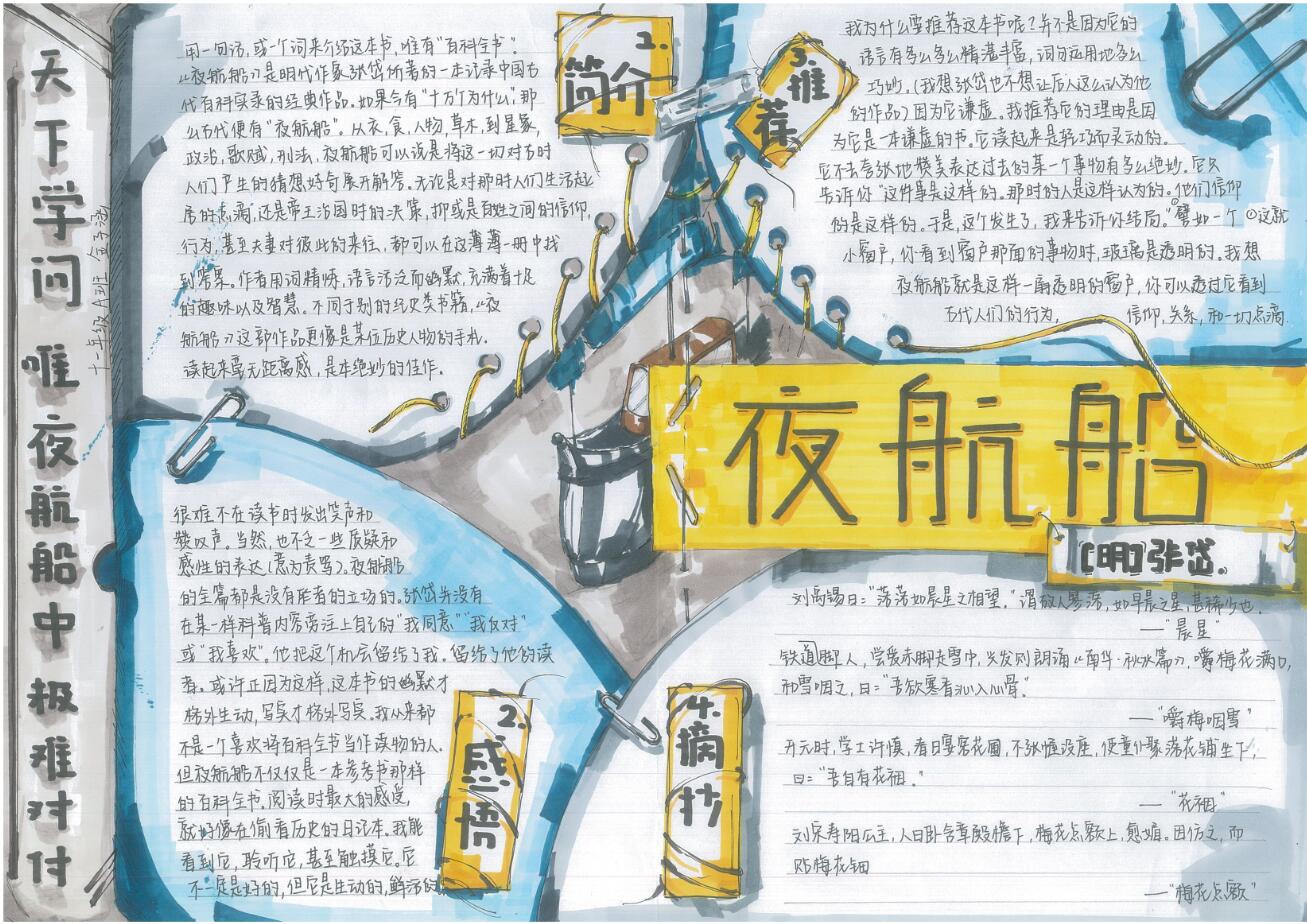 天下学问 唯夜航船中 极难对付
十一年级A班 金子涵
2.
简介
用一句话，或一个词来介绍这本书，唯有“百科全书”。
《夜航船》是明代作家张岱所著的一本记录中国古
代百科实录的经典作品。如果今有“十万个为什么”，那
么古代便有“夜航船”。从衣，食，人物，草木，到星象，
政治，歌赋，刑法，夜航船可以说是将这一切对古时
人们产生的猜想好奇展开解答。无论是对那时人们生活起
居的点滴，还是帝王治国时的决策，抑或是百姓之间的信仰，
行为，甚至夫妻对彼此的来往，都可以在这薄薄一册中找
到答案。作者用词精炼，语言活泛而幽默，充满着十足
的趣味以及智慧。不同于别的经史类书籍，《夜
航船》这部作品更像是某位历史人物的手札，
读起来毫无距离感，是本绝妙的佳作。
3.
推荐
我为什么要推荐这本书呢？并不是因为它的
语言有多么多么精湛丰富，词句应用地多么
巧妙，（我想张岱也不想让后人这么认为他
的作品）因为它谦虚。我推荐它的理由是因
为它是一本谦虚的书。它读起来是轻巧而灵动的。
它不去夸张地赞美表达过去的某一个事物有多么绝妙，它只
告诉你“这件事是这样的，那时的人是这样认为的。他们信仰
的是这样的。于是，这个发生了，我来告诉你结局。”譬如一个 这就
小窗户，你看到窗户那面的事物时，玻璃是透明的。我想
夜航船就是这样一扇透明的窗户，你可以透过它看到
古代人们的行为， 信仰，关系，和一切点滴
夜航船
[明]张岱。
很难不在读书时发出笑声和
赞叹声。当然，也不乏一些质疑和
感性的表达（意为责骂）。夜航船
的全篇都是没有作者的立场的。张岱并没有
在某一样科普内容旁注上自己的“我同意”“我反对”
或“我喜欢”。他把这个机会留给了我，留给了他的读
者。或许正因为这样，这本书的幽默才
格外生动，写实才格外写实。我从来都
不是一个喜欢将百科全书当作读物的人。
但夜航船不仅仅是一本参考书那样
的百科全书。阅读时最大的感觉，
就好像在偷看历史的日记本。我能
看到它，聆听它，甚至触摸它。它
不一定是好的，但它是生动的，鲜活的
2.
感悟
4.
摘抄
刘禹锡曰：“落落如晨星之相望。”谓故人寥落，如早晨之星，甚稀少也。
——“晨星”
铁道脚人，尝爱赤脚走雪中，兴发则朗诵《南华·秋水篇》，嚼梅花满口，
和雪咽之，曰：“吾欲寒香沁入心骨。”
——“嚼梅咽雪”
开元时，学士许慎，春日宴客花圃，不张幄设座，使童仆聚落花铺坐下，
曰：“吾自有花裀。”
——“花裀”
刘宋寿阳公主，人日卧含章殿檐下，梅花点额上，愈媚。因仿之，而
贴梅花钿
——“梅花点额”